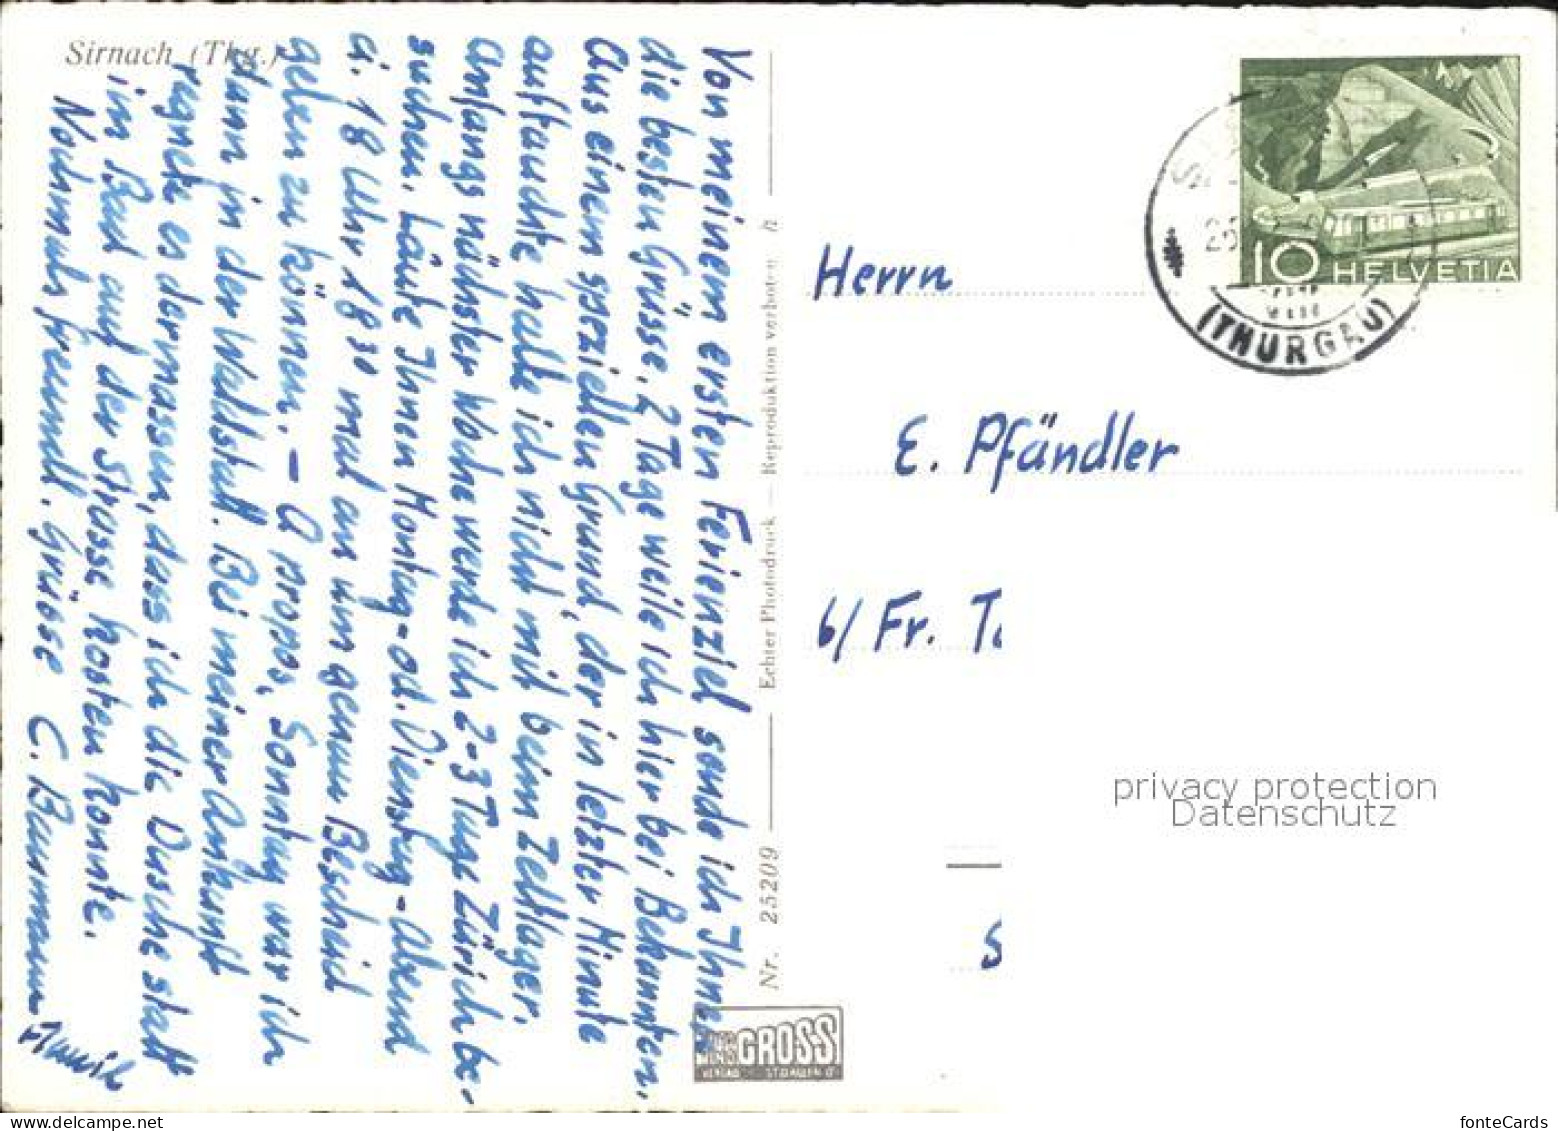 Sirnach (Thg.)
Von meinem ersten Ferienziel sende ich Ihnen
die besten Grüsse. 2 Tage weile ich hier bei Bekannten.
Aus einem speziellen Grund, der in letzter Minute
auftauchte halte ich nicht mit beim Zeltlager.
Anfangs nächster Woche werde ich 2-3 Tage Zürich be-
suchen. Läute Ihnen Montag- od. Dienstag-Abend
a. 18 Uhr 1830 mal an um genau Bescheid
geben zu können. - Apropos, Sonntag war ich
dann in der Waldstatt. Bei meiner Ankunft
regnete es dermassen, dass ich die Dusche statt
im Bad auf der Strasse kosten konnte.
Nochmals freundl. Grüsse C. Baumann
Nr. 25209
Echter Photodruck — Reproduktion verboten
GROSS
VERLAG ST. GALLEN
Herrn
E. Pfändler
b/ Fr. T
S
10 HELVETIA
(THURGAU)
privacy protection
Datenschutz
fonteCards